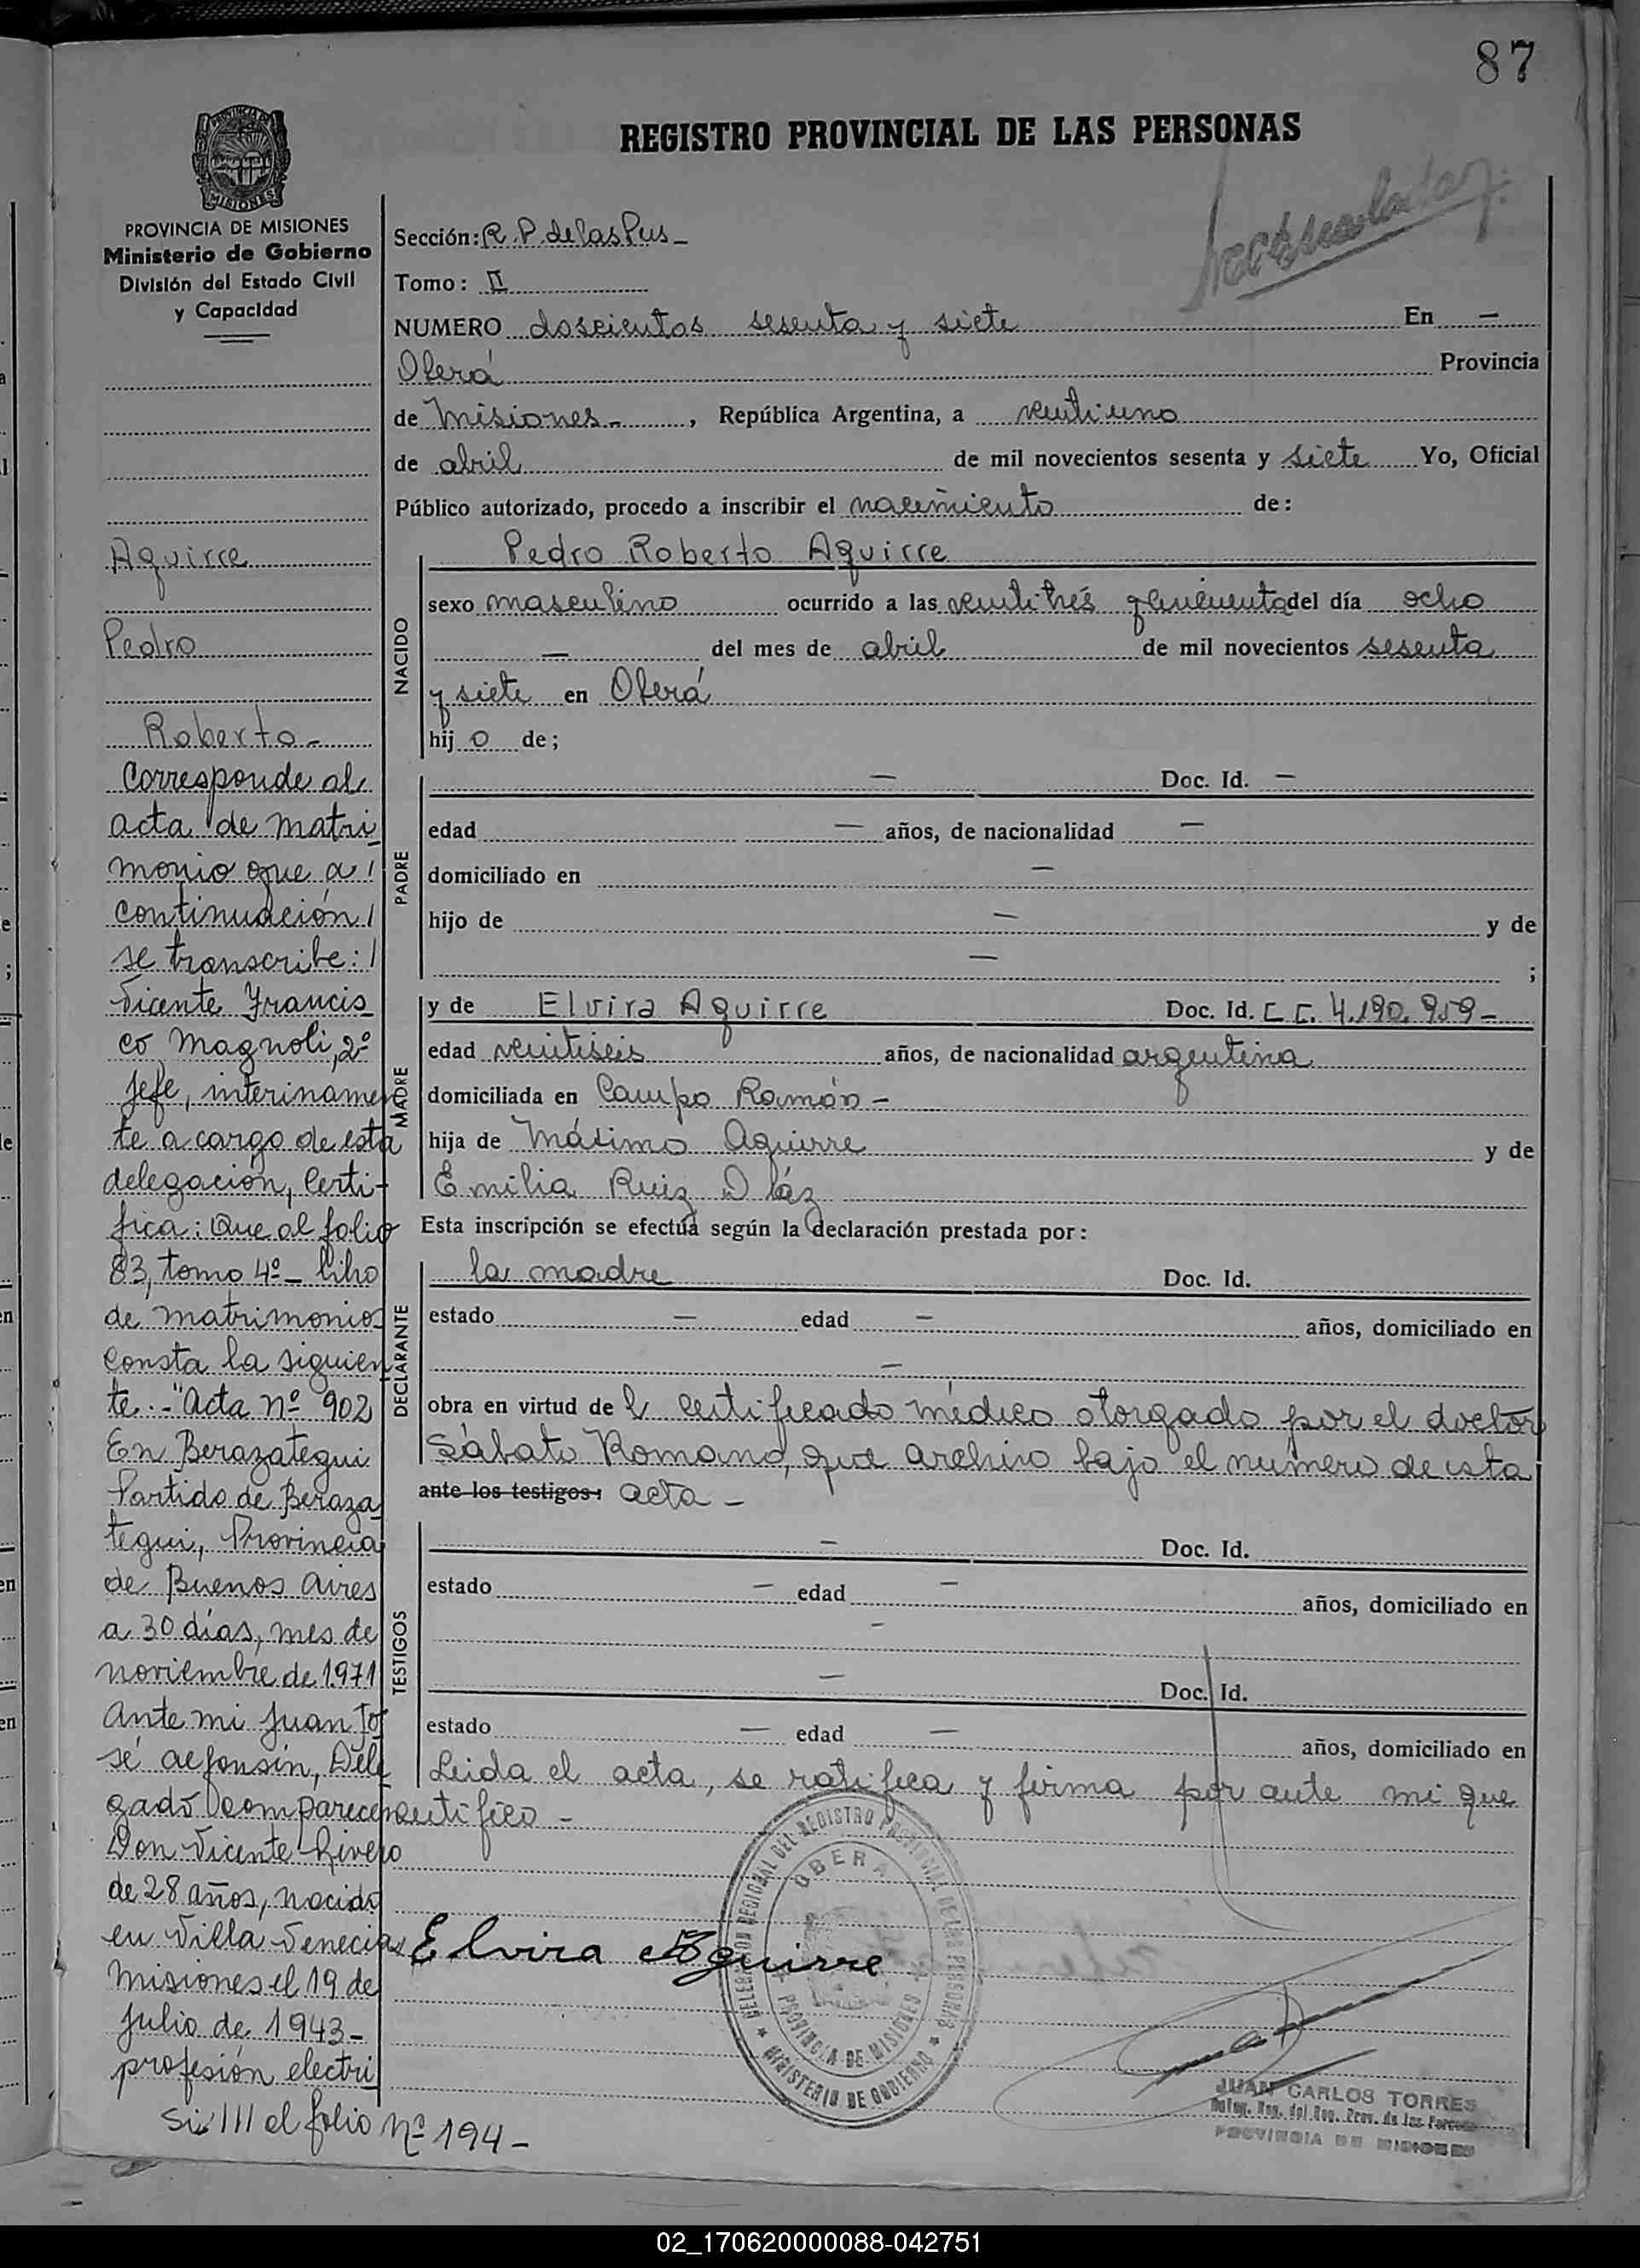 87
REGISTRO PROVINCIAL DE LAS PERSONAS
PROVINCIA DE MISIONES
Ministerio de Gobierno
División del Estado Civil
y Capacidad
Aguirre
Pedro
Roberto-
Corresponde al
acta de matri
monio que a
continuación
se transcribe:
Vicente Francis
co Magnoli, 2º
Jefe, interinamen
te a cargo de esta
delegación, Certi-
fica: Que al folio
83, tomo 4º- libro
de matrimonios
Consta la siguien
te.-"Acta nº 902
En Berazategui
Partido de Beraza
tegui, Provincia
de Buenos Aires
a 30 días, mes de
noviembre de 1971
Ante mi Juan Jo
sé Alfonsín, Dele
gado comparecen
Don Vicente Rivero
de 28 años, nacido
en Villa Venecia
Misiones el 19 de
Julio de 1943-
profesión electri
Si/// el folio Nº 194-
Sección: R.P. de las Pers-
Tomo: II
NUMERO doscientos sesenta y siete En -
Oberá Provincia
de Misiones-, República Argentina, a veintiuno
de abril de mil novecientos sesenta y siete Yo, Oficial
Público autorizado, procedo a inscribir el nacimiento de:
NACIDO
Pedro Roberto Aguirre
sexo masculino ocurrido a las veintitrés y cincuenta del día ocho
- del mes de abril de mil novecientos sesenta
y siete en Oberá
hijo de;
PADRE
- Doc. Id. -
edad - años, de nacionalidad -
domiciliado en -
hijo de - y de
- ;
MADRE
y de Elvira Aguirre Doc. Id. L.C. 4.190.959-
edad veintiseis años, de nacionalidad argentina
domiciliada en Campo Ramón-
hija de Máximo Aguirre y de
Emilia Ruiz Díaz
Esta inscripción se efectúa según la declaración prestada por:
DECLARANTE
la madre Doc. Id.
estado - edad - años, domiciliado en
-
obra en virtud de l certificado médico otorgado por el doctor
Sábato Romano, que archivo bajo el número de esta
ante los testigos: acta-
TESTIGOS
- Doc. Id.
estado - edad - años, domiciliado en
-
- Doc. Id.
estado - edad - años, domiciliado en
Leida el acta, se ratifica y firma por ante mi que
certifico-
Elvira Aguirre
DELEGACION REGIONAL DEL REGISTRO PROVINCIAL DE LAS PERSONAS
OBERA
PROVINCIA DE MISIONES
MINISTERIO DE GOBIERNO
JUAN CARLOS TORRES
Deleg. Reg. del Reg. Prov. de las Personas
PROVINCIA DE MISIONES
02_170620000088-042751